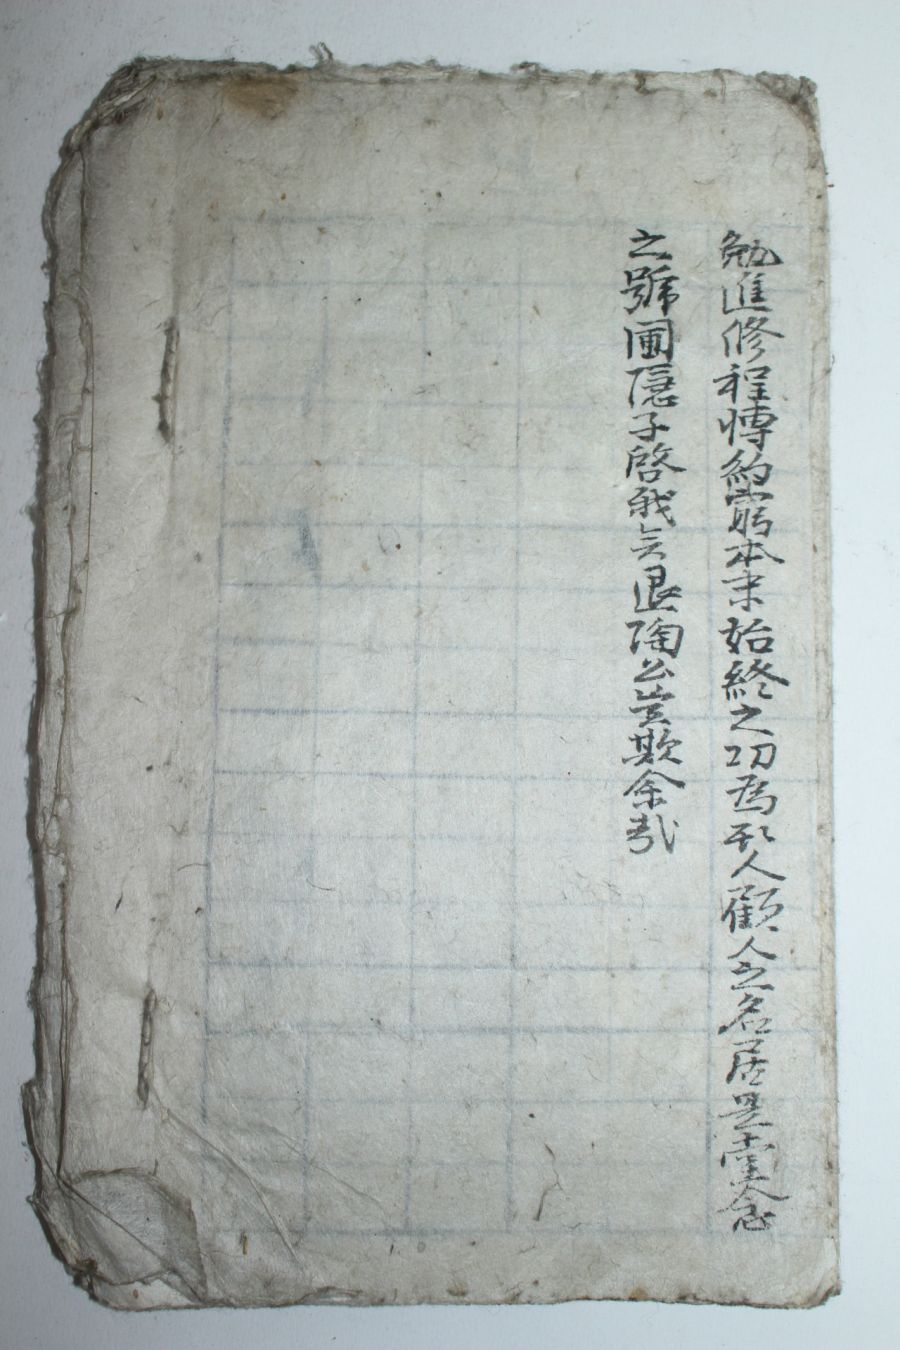 勉進修程博約窮本末始終之功爲形人顧人之名居是堂念
之號圃隱子啓我矣退陶公豈欺余哉